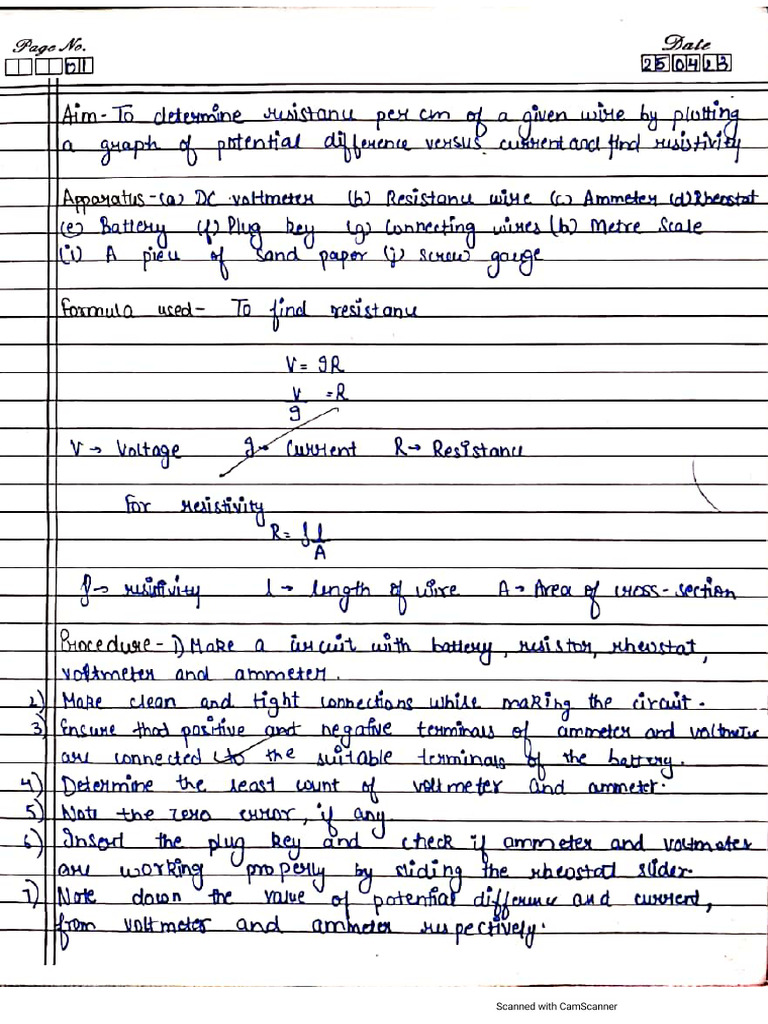 Page No.
01
Date
25 04 23
Aim- To determine resistance per cm of a given wire by plotting
a graph of potential difference versus current and find resistivity
Apparatus - (a) DC voltmeter (b) Resistance wire (c) Ammeter (d) Rheostat
(e) Battery (f) Plug key (g) Connecting wires (h) Metre Scale
(i) A piece of Sand paper (j) screw gauge
Formula used- To find resistance
V = IR
V/I = R
V → Voltage I → Current R → Resistance
For resistivity
R = ρl/A
ρ → resistivity l → length of wire A → Area of cross-section
Procedure - 1) Make a circuit with battery, resistor, rheostat,
voltmeter and ammeter.
2) Make clean and tight connections while making the circuit.
3) Ensure that positive and negative terminals of ammeter and voltmeter
are connected to the suitable terminals of the battery.
4) Determine the least count of voltmeter and ammeter.
5) Note the zero error, if any
6) Insert the plug key and check if ammeter and voltmeter
are working properly by sliding the rheostat slider.
7) Note down the value of potential difference and current,
from voltmeter and ammeter respectively.
Scanned with CamScanner